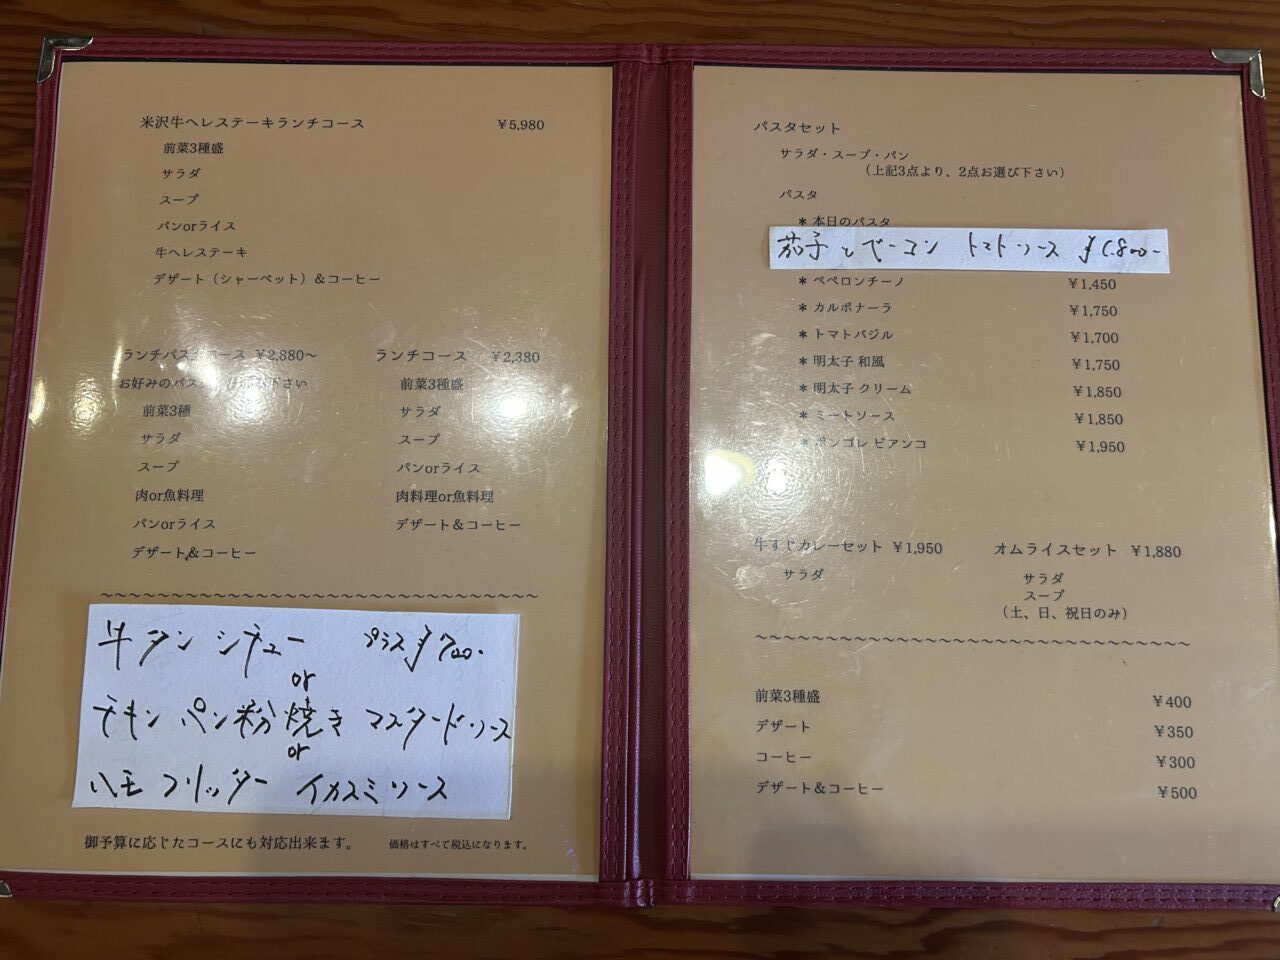 米沢牛ヘレステーキランチコース ¥5,980
前菜3種盛
サラダ
スープ
パンorライス
牛ヘレステーキ
デザート（シャーベット）＆コーヒー
ランチパスタコース ¥2,880～
お好みのパスタ 下さい
前菜3種
サラダ
スープ
肉or魚料理
パンorライス
デザート＆コーヒー
ランチコース ¥2,380
前菜3種盛
サラダ
スープ
パンorライス
肉料理or魚料理
デザート＆コーヒー
～～～～～～～～～～～～～～～～～～～～～～～～～～～～～～
牛タンシチュー プラス¥700-
or
チキン パン粉焼き マスタードソース
or
ハモ フリッター イカスミソース
御予算に応じたコースにも対応出来ます。 価格はすべて税込になります。
パスタセット
サラダ・スープ・パン
（上記3点より、2点お選び下さい）
パスタ
＊ 本日のパスタ
茄子とベーコン トマトソース ¥1,800-
＊ ペペロンチーノ ¥1,450
＊ カルボナーラ ¥1,750
＊ トマトバジル ¥1,700
＊ 明太子 和風 ¥1,750
＊ 明太子 クリーム ¥1,850
＊ ミートソース ¥1,850
＊ ボンゴレ ビアンコ ¥1,950
牛すじカレーセット ¥1,950
サラダ
オムライスセット ¥1,880
サラダ
スープ
（土、日、祝日のみ）
～～～～～～～～～～～～～～～～～～～～～～～～～～～～～～
前菜3種盛 ¥400
デザート ¥350
コーヒー ¥300
デザート＆コーヒー ¥500